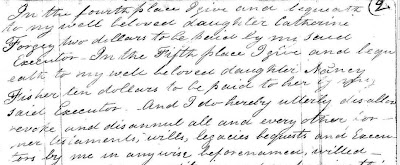 In the fourth place I give and bequeath
to my well beloved daughter Catherine
Forgey two dollars to be paid by my said
Executor. In the Fifth place I give and beque
eath to my well beloved daughter Nancy
Fisher ten dollars to be paid to her by my
said Executor. And I do hereby utterly disallow
revoke and disannul all and every other for-
mer testaments, wills, legacies bequests and Execu-
tors by me in any wise before named, willed
2